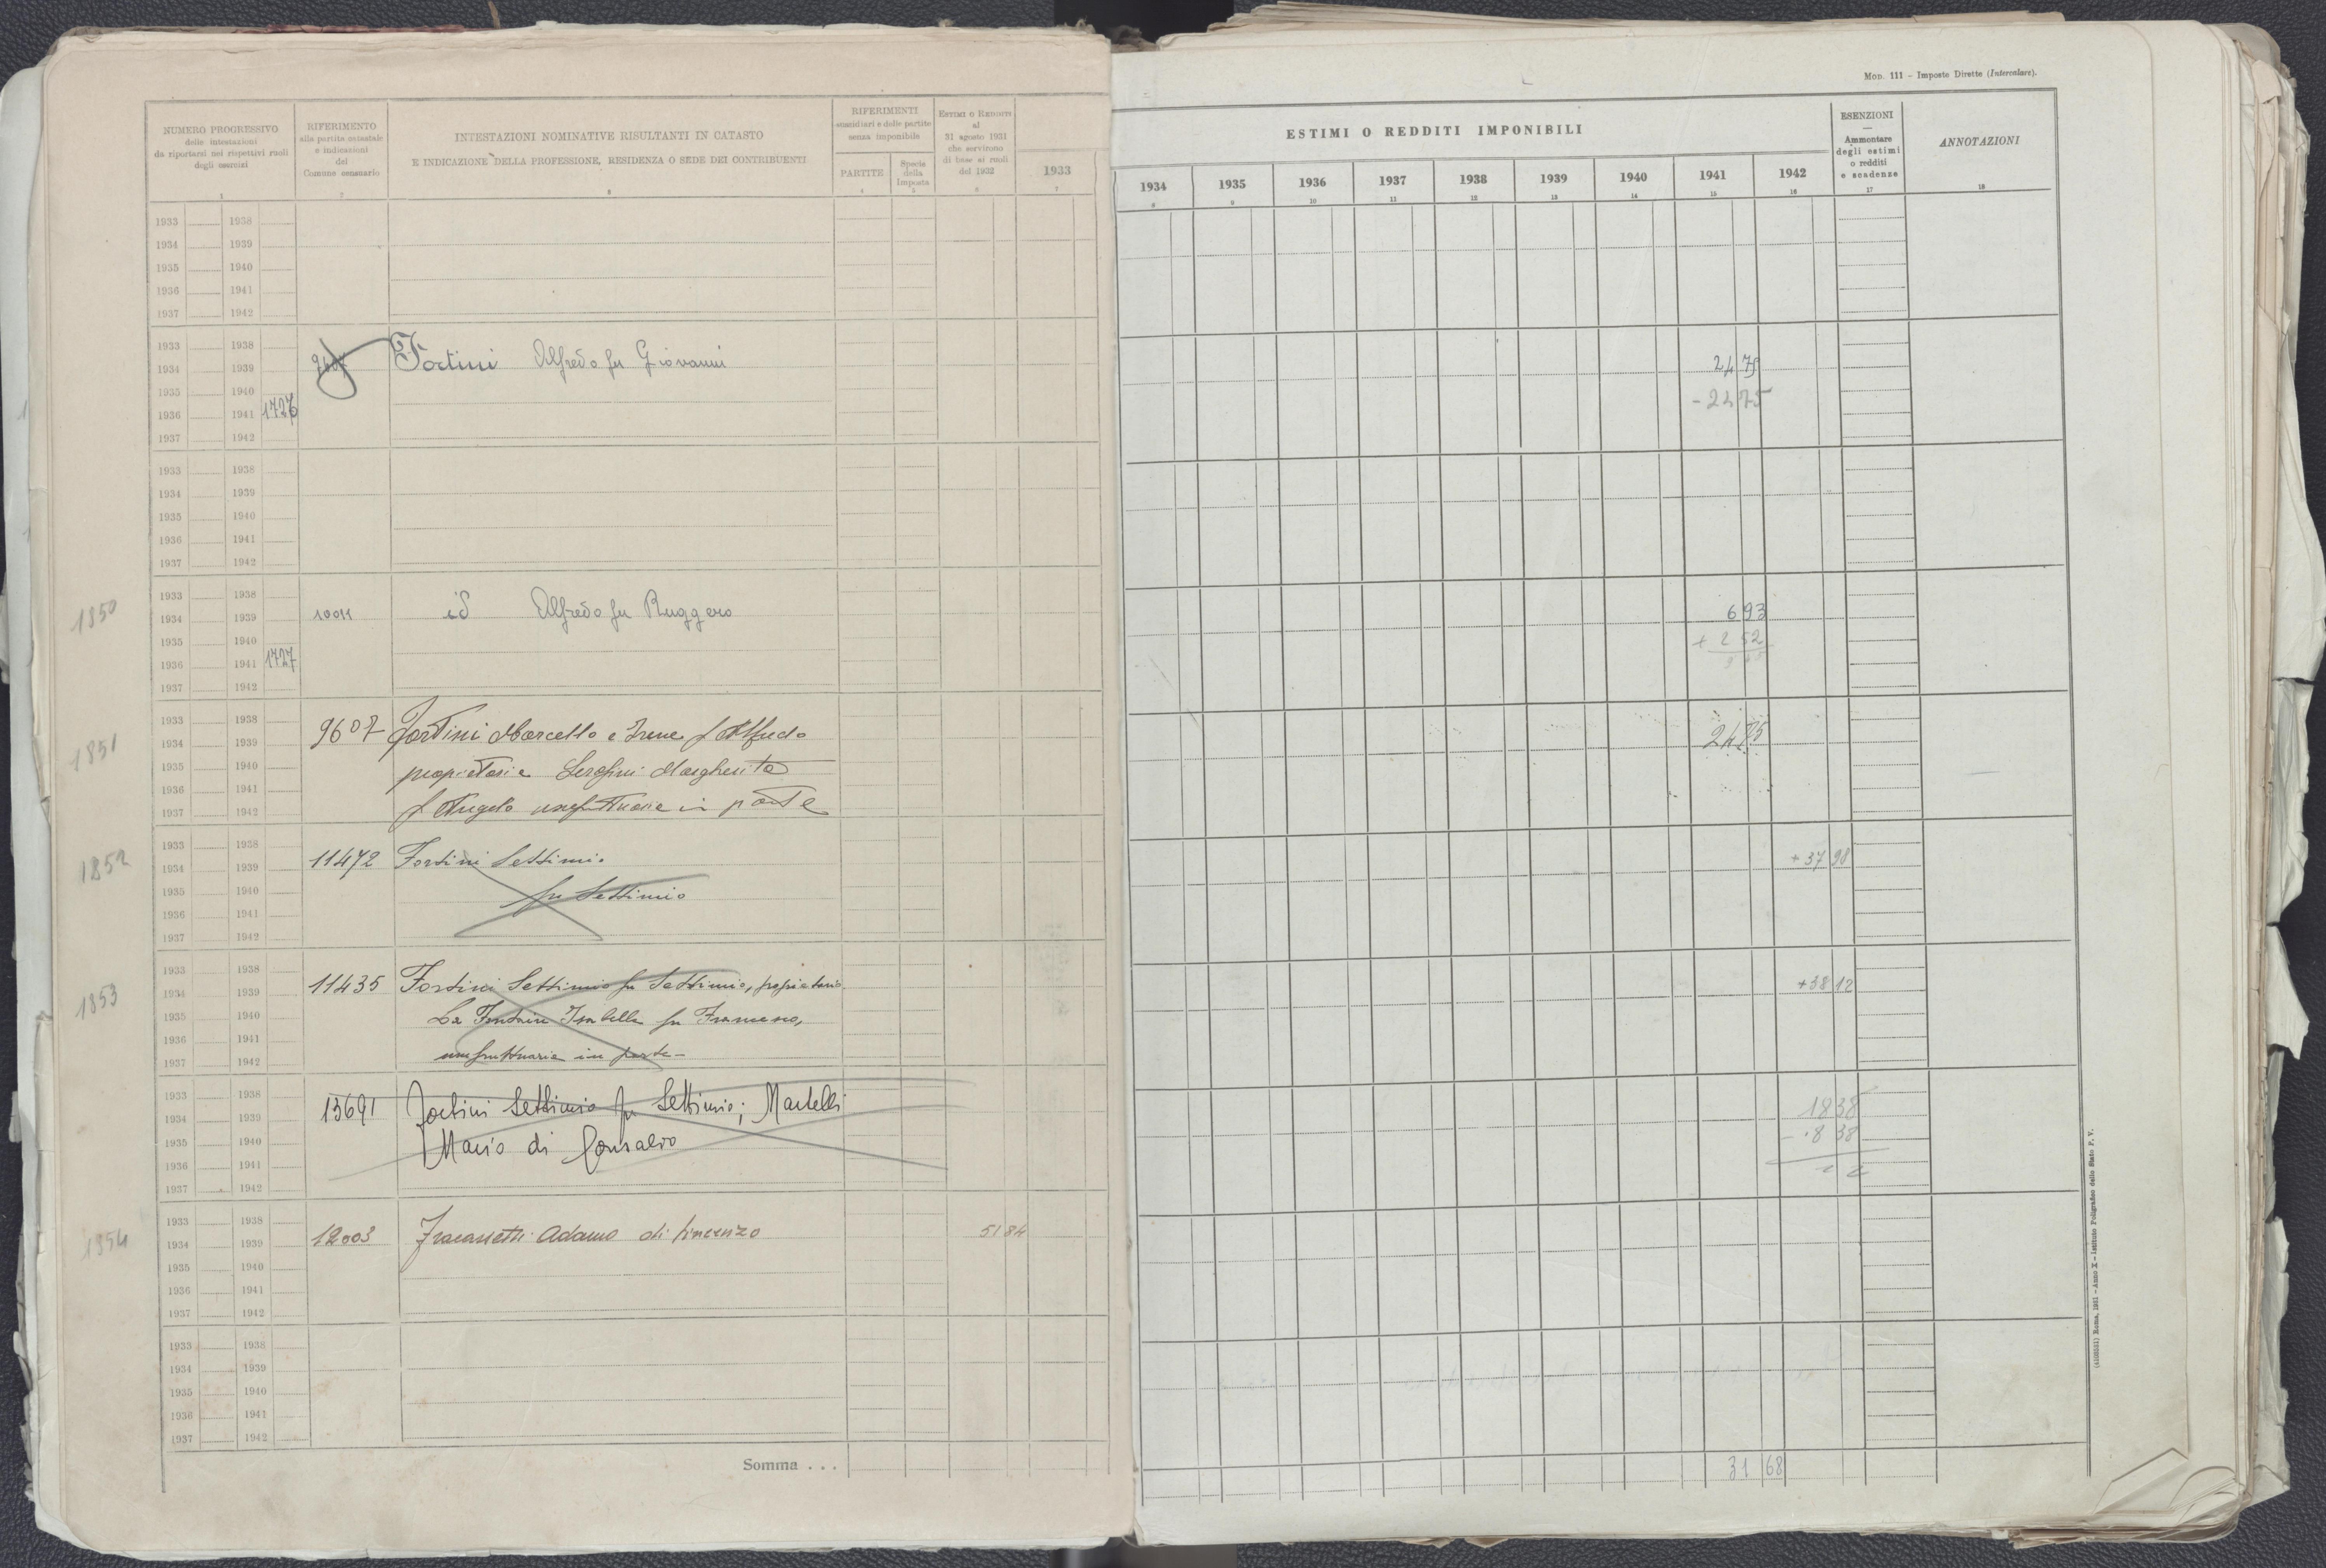 Mod. 111 - Imposte Dirette (Intercalare).
NUMERO PROGRESSIVO
delle intestazioni
da riportarsi nei rispettivi ruoli
degli esercizi
1
RIFERIMENTO
alla partita catastale
e indicazioni
del
Comune censuario
2
INTESTAZIONI NOMINATIVE RISULTANTI IN CATASTO
E INDICAZIONE DELLA PROFESSIONE, RESIDENZA O SEDE DEI CONTRIBUENTI
3
RIFERIMENTI
sussidiari e delle partite
senza imponibile
PARTITE
4
Specie
della
Imposta
5
Estimi o Redditi
al
31 agosto 1931
che servirono
di base ai ruoli
del 1932
6
1933
7
ESTIMI O REDDITI IMPONIBILI
1934 1935 1936 1937 1938 1939 1940 1941 1942
8 9 10 11 12 13 14 15 16
ESENZIONI
—
Ammontare
degli estimi
o redditi
e scadenze
17
ANNOTAZIONI
18
1933 1938
1934 1939
1935 1940
1936 1941
1937 1942
1933 1938
1934 1939 Fortini Alfredo fu Giovanni 24 75
1935 1940 - 24 75
1936 1941 1726
1937 1942
1933 1938
1934 1939
1935 1940
1936 1941
1937 1942
1850
1933 1938
1934 1939 10011 id Alfredo fu Ruggero 6 93
1935 1940 + 2 52
1936 1941 1727
1937 1942
1851
1933 1938
1934 1939 9607 Fortini Marcello e Irene f Alfredo 24 75
1935 1940 proprietari e Serafini Margherita
1936 1941
1937 1942 f Angelo usufruttuaria in parte
1852
1933 1938
1934 1939 11472 Fortini Settimio + 37 98
1935 1940 fu Settimio
1936 1941
1937 1942
1853
1933 1938
1934 1939 11435 Fortini Settimio fu Settimio, proprietario + 38 12
1935 1940 La Fontaine Isabella fu Francesco,
1936 1941
1937 1942 usufruttuaria in parte -
1933 1938
1934 1939 13691 Fortini Settimio fu Settimio; Martelli 18 38
1935 1940 Mario di Consalvo
1936 1941
1937 1942
1854
1933 1938
1934 1939 12003 Fracassetti Adamo di Vincenzo 51 84
1935 1940
1936 1941
1937 1942
1933 1938
1934 1939
1935 1940
1936 1941
1937 1942
Somma . . . 31 68
(4103531) Roma, 1931 - Anno X - Istituto Poligrafico dello Stato P. V.